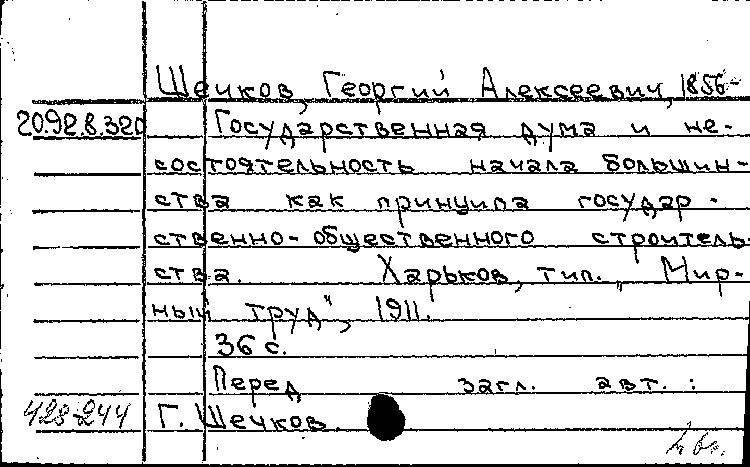 Щечков, Георгий Алексеевич, 1856-
20.92.8.320 Государственная дума и не-
состоятельность начала большин-
ства как принципа государ-
ственно-общественного строитель-
ства. Харьков, тип. „Мир-
ный труд", 1911.
36 с.
Перед загл. авт.:
428-244 Г. Щечков.